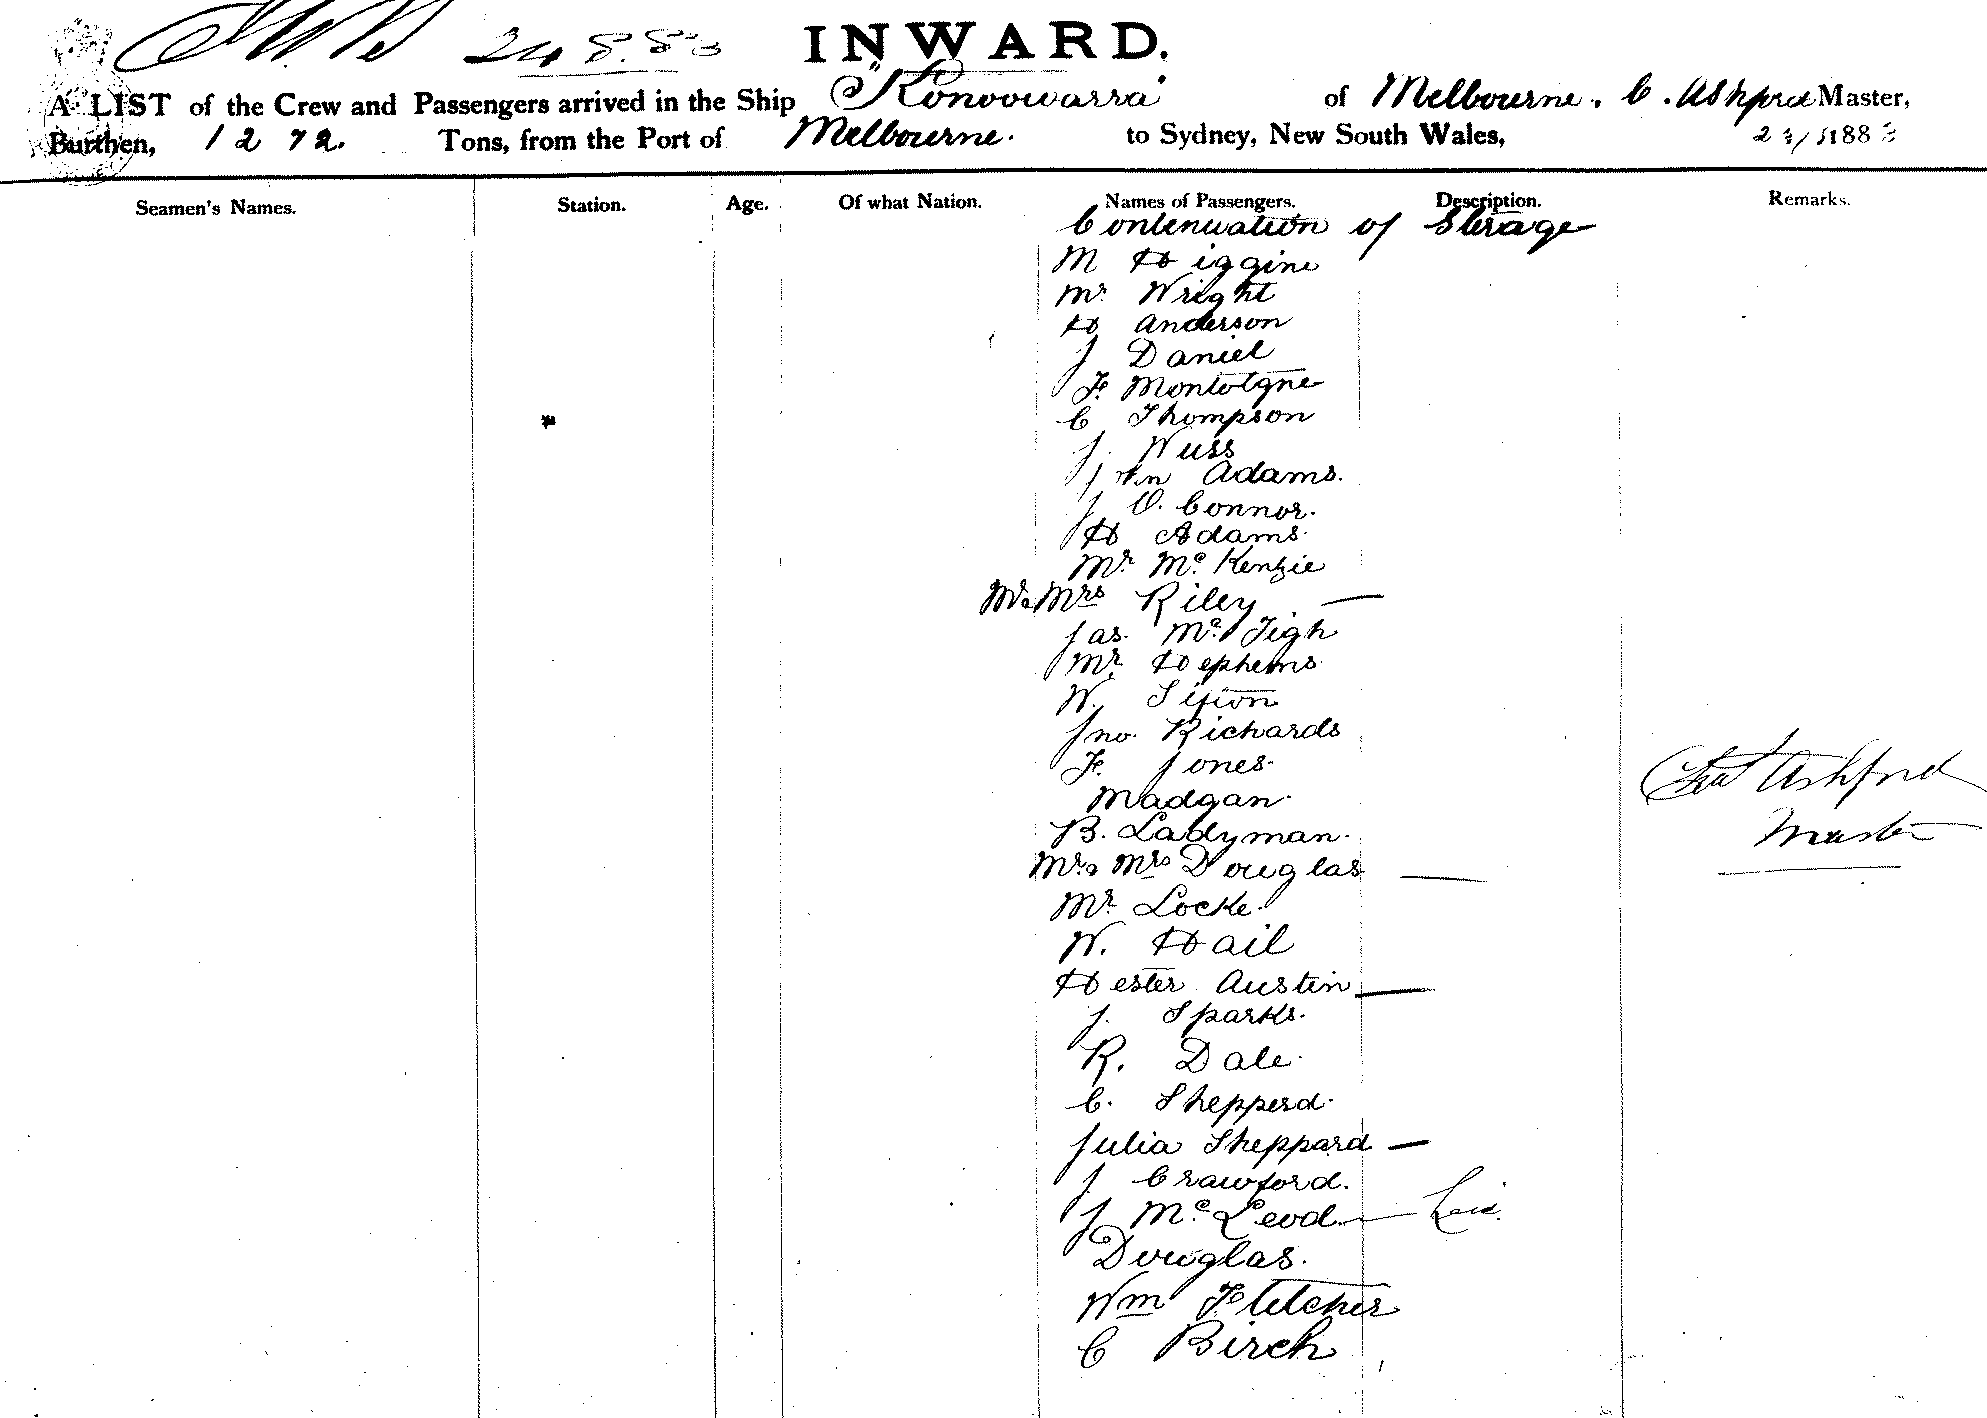 24 8.83
INWARD.
A LIST of the Crew and Passengers arrived in the Ship "Konoowarra" of Melbourne. C. Ashford Master,
Burthen, 1272. Tons, from the Port of Melbourne. to Sydney, New South Wales, 1883
Seamen's Names. Station. Age. Of what Nation. Names of Passengers. Description. Remarks.
Contenuation of Sterage
M Higgins
Mr. Wright
H Anderson
J Daniel
F. Montotgne
C Thompson
J. Wuss
J Wn Adams.
J O. Connor.
H Adams.
Mr Mc. Kenzie
Mr & Mrs Riley —
Jas. Mc. Tigh
Mr. Hephems
W.
Jno. Richards
F. Jones.
Madgan.
B. Ladyman.
Ashford
Master
Mr. & Mrs Douglas —
Mr. Locke.
W. Hail
Hester Austin —
J. Sparks.
R. Dale.
C. Shepperd.
Julia Sheppard —
J Crawford.
J Mc. Leod —
Douglas.
Wm Fletcher
C Birch